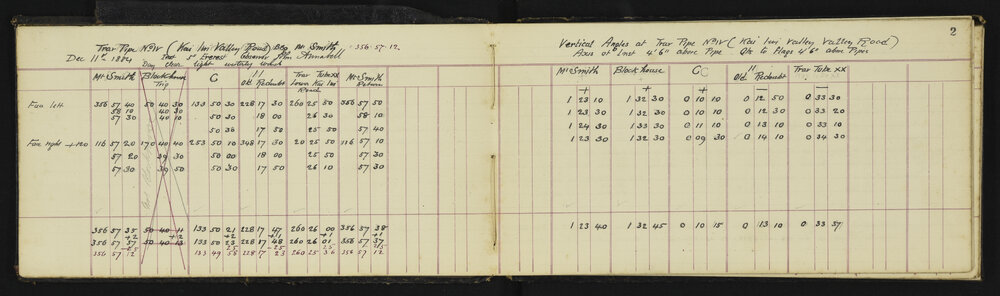 2
Trav Pipe No IV (Kai Iwi Valley Road) Beg Mc Smith 356·57·12
Dec 11th 1884 Inst 5" Everest Observer John Annabell
Day clear light westerly wind
Mc Smith Block house Trig C 11 Old Redoubt Trav Tube XX Lower Kai Iwi Road Mc Smith Return
Face left 356 57 40 50 40 30 133 50 30 228 17 30 260 25 50 356 57 50
58 10 40 30 50 30 18 00 26 30 58 10
57 30 40 10
50 30 17 50 25 50 57 40
Face right +120 116 57 20 170 40 40 253 50 10 348 17 30 20 25 50 116 57 10
57 20 39 30 50 00 18 00 25 50 57 30
57 30 39 50 50 30 17 50 26 10 57 30
356 57 35 50 40 11 133 50 21 228 17 47 260 26 00 356 57 38
+2 +2 +2 +1 +1
356 57 37 50 40 13 133 50 23 228 17 48 260 26 01 356 57 37
-25 25 25 25
356 57 12 133 49 58 228 17 23 260 25 36 356 57 12
Vertical Angles at Trav Pipe No IV (Kai Iwi Valley Valley Road)
Axis of Inst 4'6" above Pipe Obs to Flags 4'6" above Pipes
Mc Smith Block house C 11 Old Redoubt Trav Tube XX
+ + + - -
1 23 10 1 32 30 0 10 10 0 12 50 0 33 30
1 23 30 1 33 00 0 10 10 0 12 30 0 33 20
1 24 30 1 33 30 0 11 10 0 13 10 0 33 10
1 23 30 1 32 30 0 09 30 0 14 10 0 34 30
1 23 40 1 32 45 0 10 15 0 13 10 0 33 57